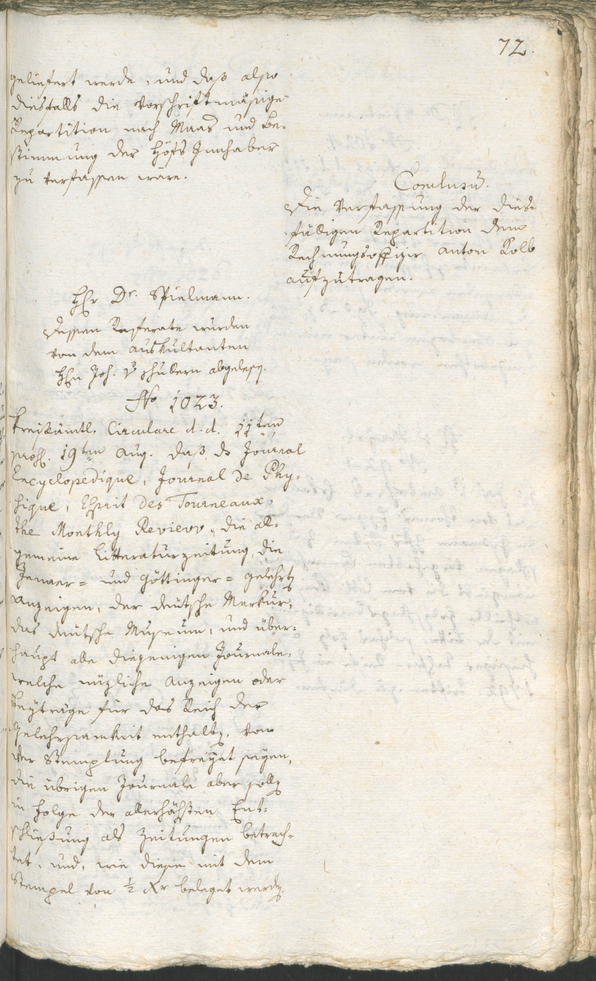 72.
geliefert werde, und daß also
diesfalls die Vorschriftmäsige
Repartition nach Maas und Be-
stimmung der Höfs Innhaber
zu verfassen wäre.
Conclusū.
Die Verfassung der dies-
fälligen Repartition dem
Rechnungsoffizir Anton Kolb
aufzutragen.
Hr Dr. Spielmann.
Dessen Referate wurden
von dem Auskultanten
Hrn Joh. v
No 1023.
Kreisämtl. Circulare d. d. 11ten
19ten Aug. daß das Journal
Encyclopedique, Journal de Phy-
sique, Esprit des Journeaux,
the Monthly Reviero, die all-
gemeine Litteraturzeitung die
Jenaer- und Göttinger- gelehrten
Anzeigen, der deutsche Merkur,
das deutsche Museum, und über-
haupt alle diejenigen Journale,
welche nüzliche Anzeigen oder
Beyträge für das Reich der
Gelehrsamkeit enthalten, von
der Stemplung befreyet seyen,
die übrigen Journale aber sollen
in Folge der allerhöchsten Ent-
schließung als Zeitungen betrach-
tet, und, wie diese mit dem
Stempel von ½ Xr belegt werden